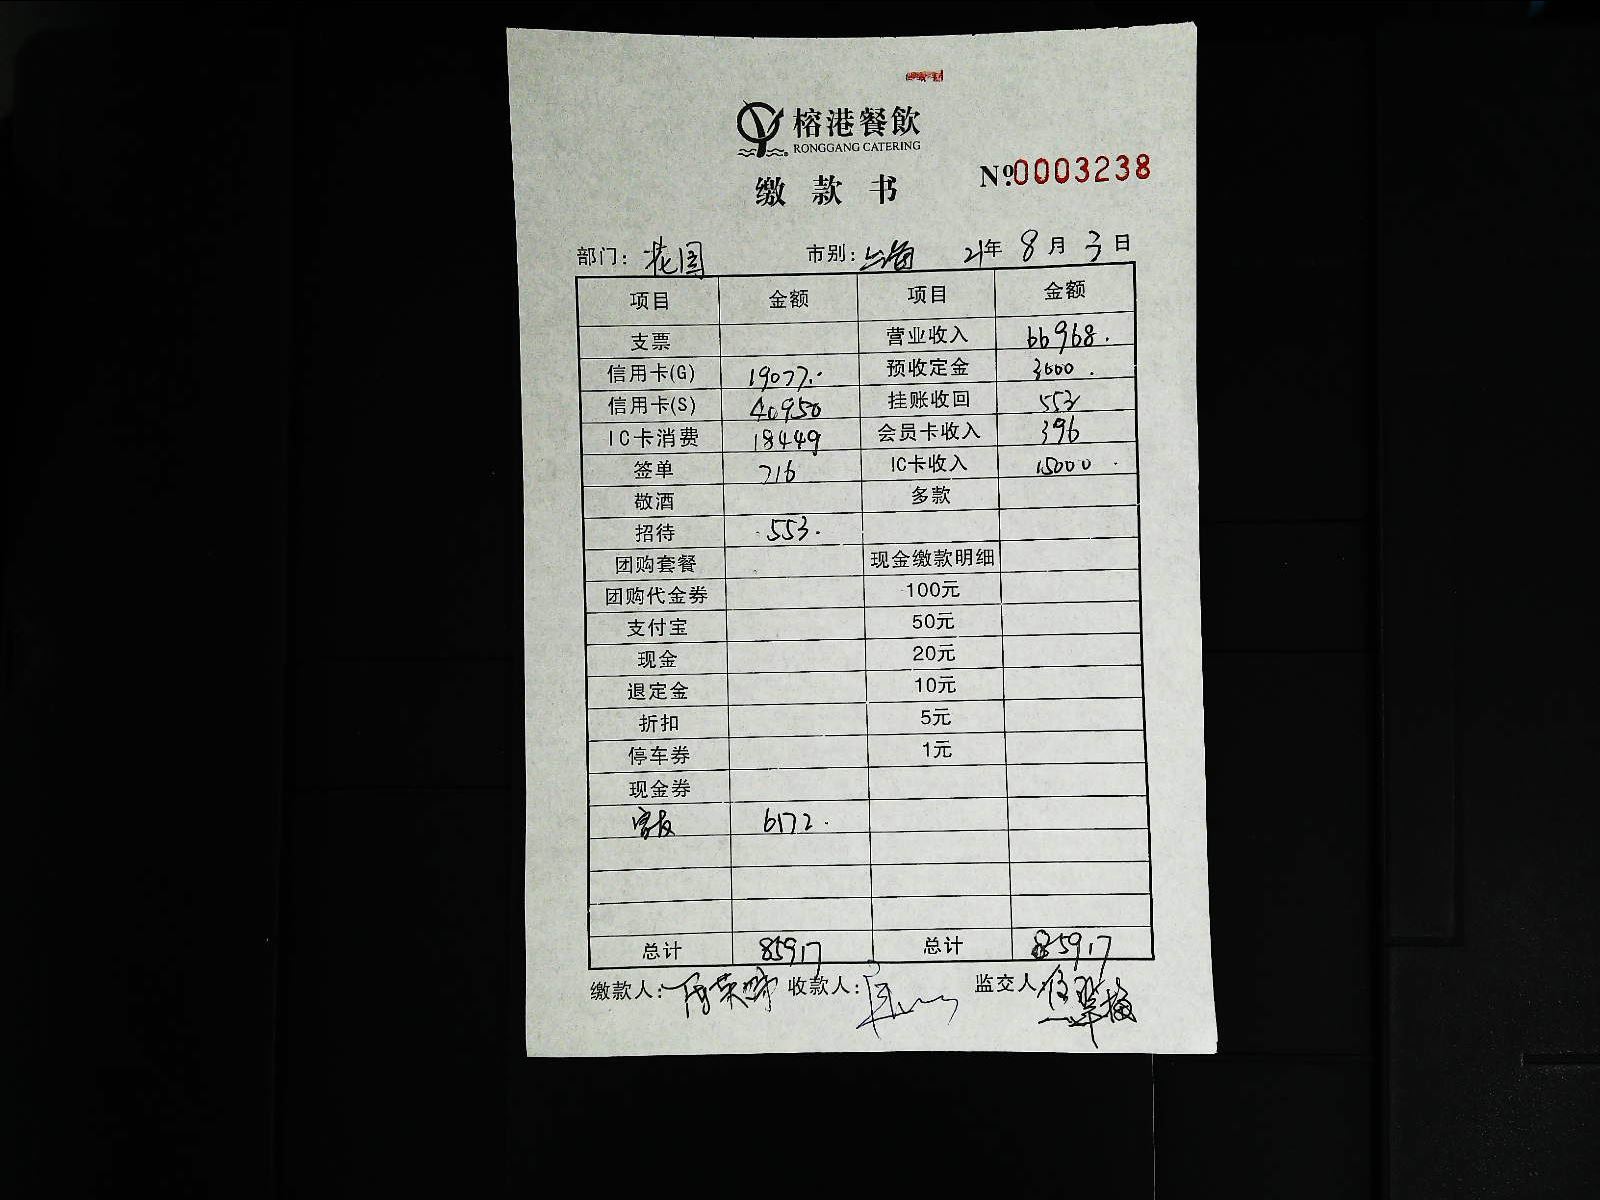 榕港餐飲
RONGGANG CATERING
缴款书
№0003238
部门：花园 市别：上海 21年 8月 3日
项目 金额 项目 金额
支票 营业收入 66968.
信用卡(G) 19077.- 预收定金 3000.
信用卡(S) 40950 挂账收回 553
IC卡消费 18449 会员卡收入 396
签单 716 IC卡收入 15000.
敬酒 多款
招待 553.
团购套餐 现金缴款明细
团购代金券 100元
支付宝 50元
现金 20元
退定金 10元
折扣 5元
停车券 1元
现金券
6172.
总计 85917 总计 85917
缴款人： 收款人： 监交人